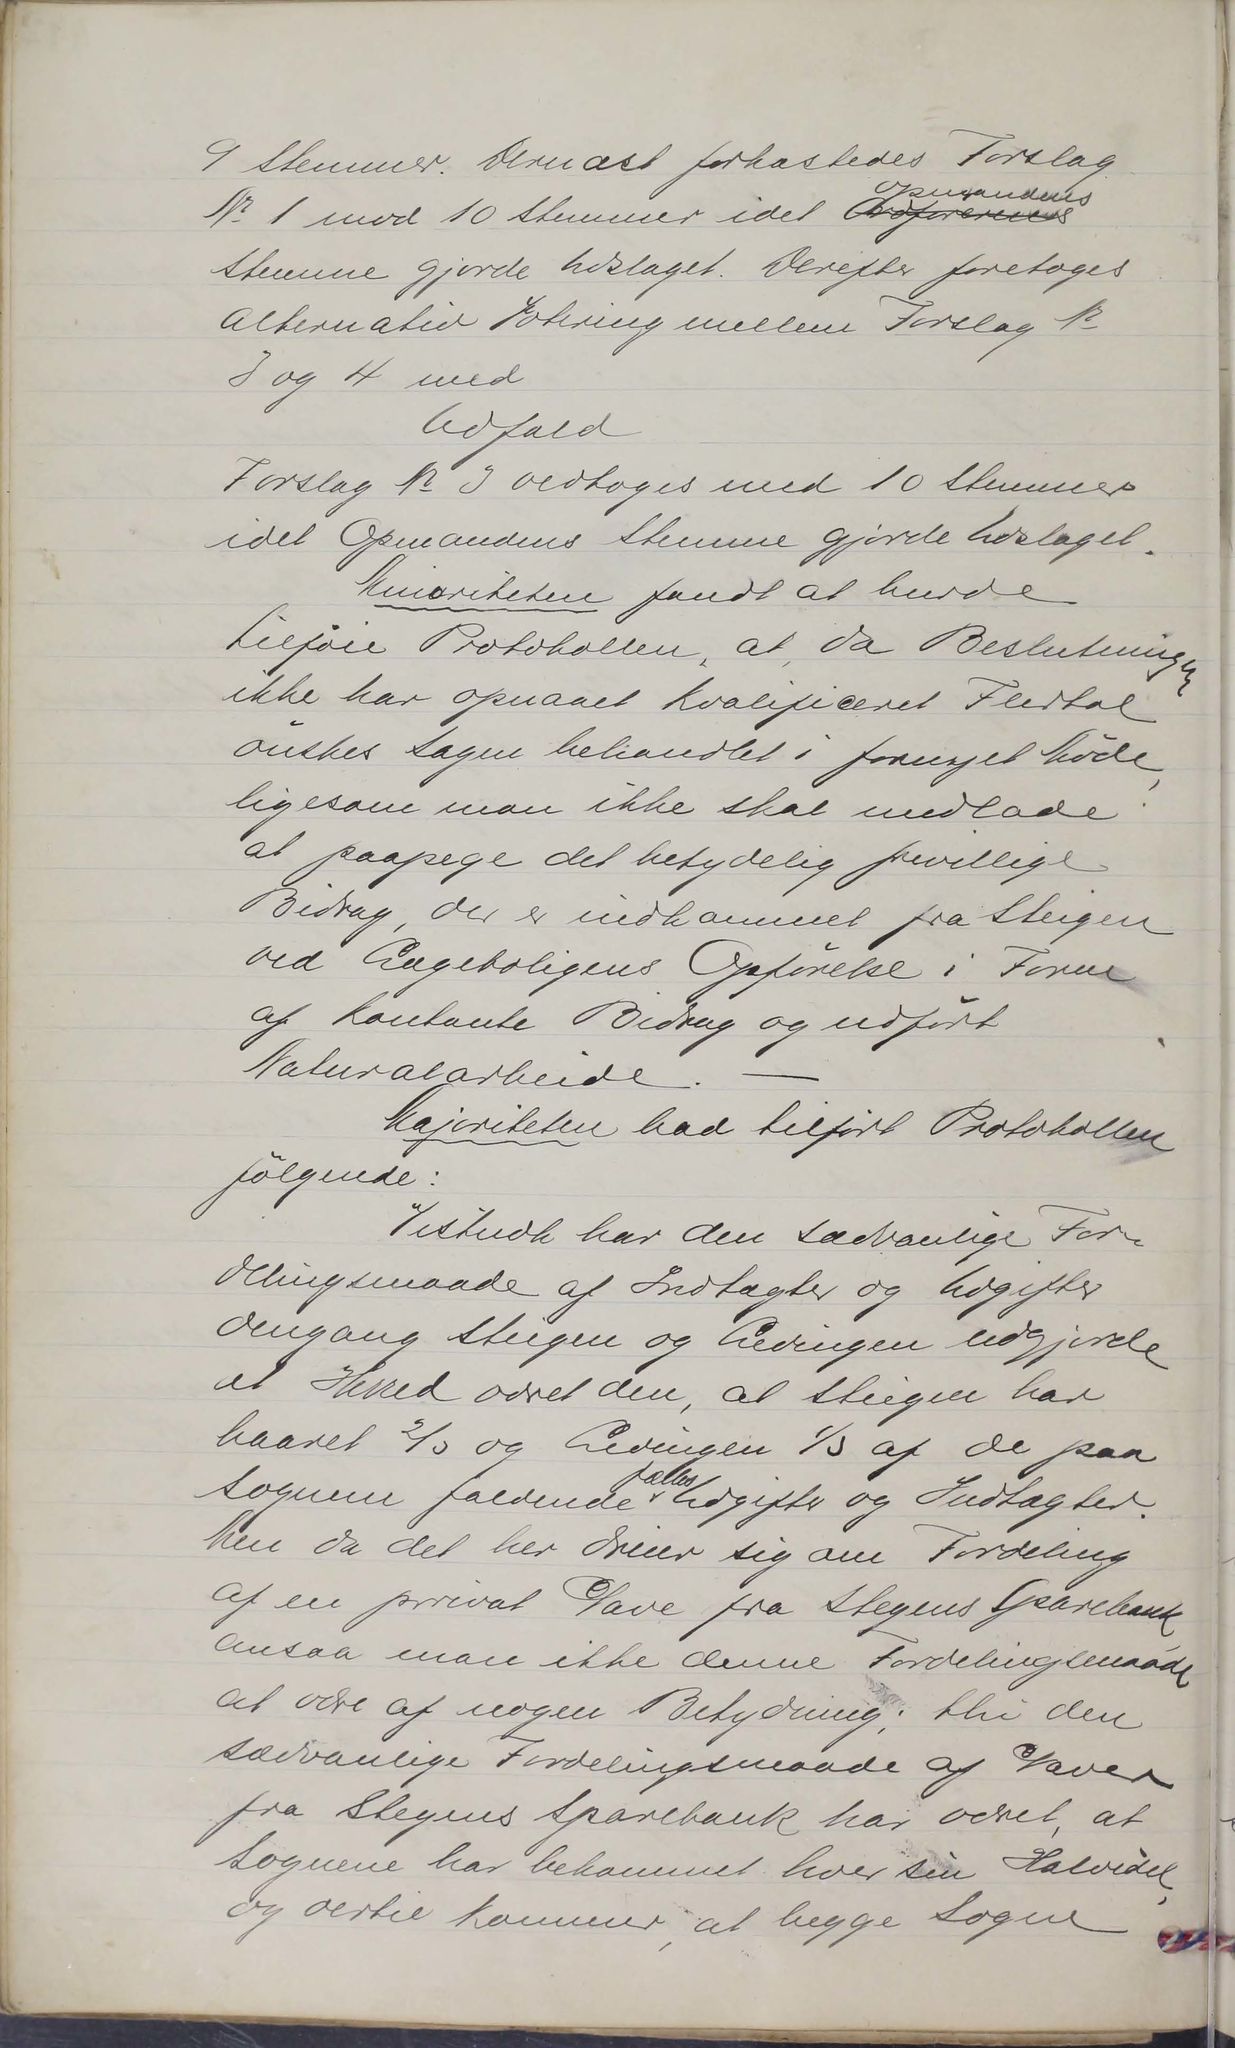 9 Stemmer. Dernæst forkastedes Forslag
Nº 1 mod 10 Stemmer idet Opmandens Ordførerens
Stemme gjorde Udslaget. Derefter foretoges
alternativ Votering mellem Forslag Nº
3 og 4 med
Udfald
Forslag Nº 3 vedtoges med 10 Stemmer
idet Opmandens Stemme gjorde Udslaget.
Minoriteten fandt at burde
tilføie Protokollen, at, da Beslutningen
ikke har opnaaet kvalificeret Flertal
ønskes Sagen behandlet i fornyet Møde,
ligesom man ikke skal undlade
at paapege det betydelig frivillige
Bidrag, der er indkommet fra Steigen
ved Lægeboligens Opførelse i Form
af kontante Bidrag og udført
Naturalarbeide. —
Majoriteten bad tilført Protokollen
følgende:
Vistnok har den sædvanlige For-
delingsmaade af Indtægter og Udgifter
dengang Steigen og Ledingen udgjorde
et Herred været den, at Steigen har
baaret 2/3 og Ledingen 1/3 af de paa
Sognene faldende fælles Udgifter og Indtægter.
Men da det her dreier sig om Fordeling
af en privat Gave fra Stegens Sparebank
ansaa man ikke denne Fordelingsmaade
at være af nogen Betydning; thi den
sædvanlige Fordelingsmaade af Gaver
fra Stegens Sparebank har været, at
Sognene har bekommet hver sin Halvdel,
og dertil kommer, at begge Sogne